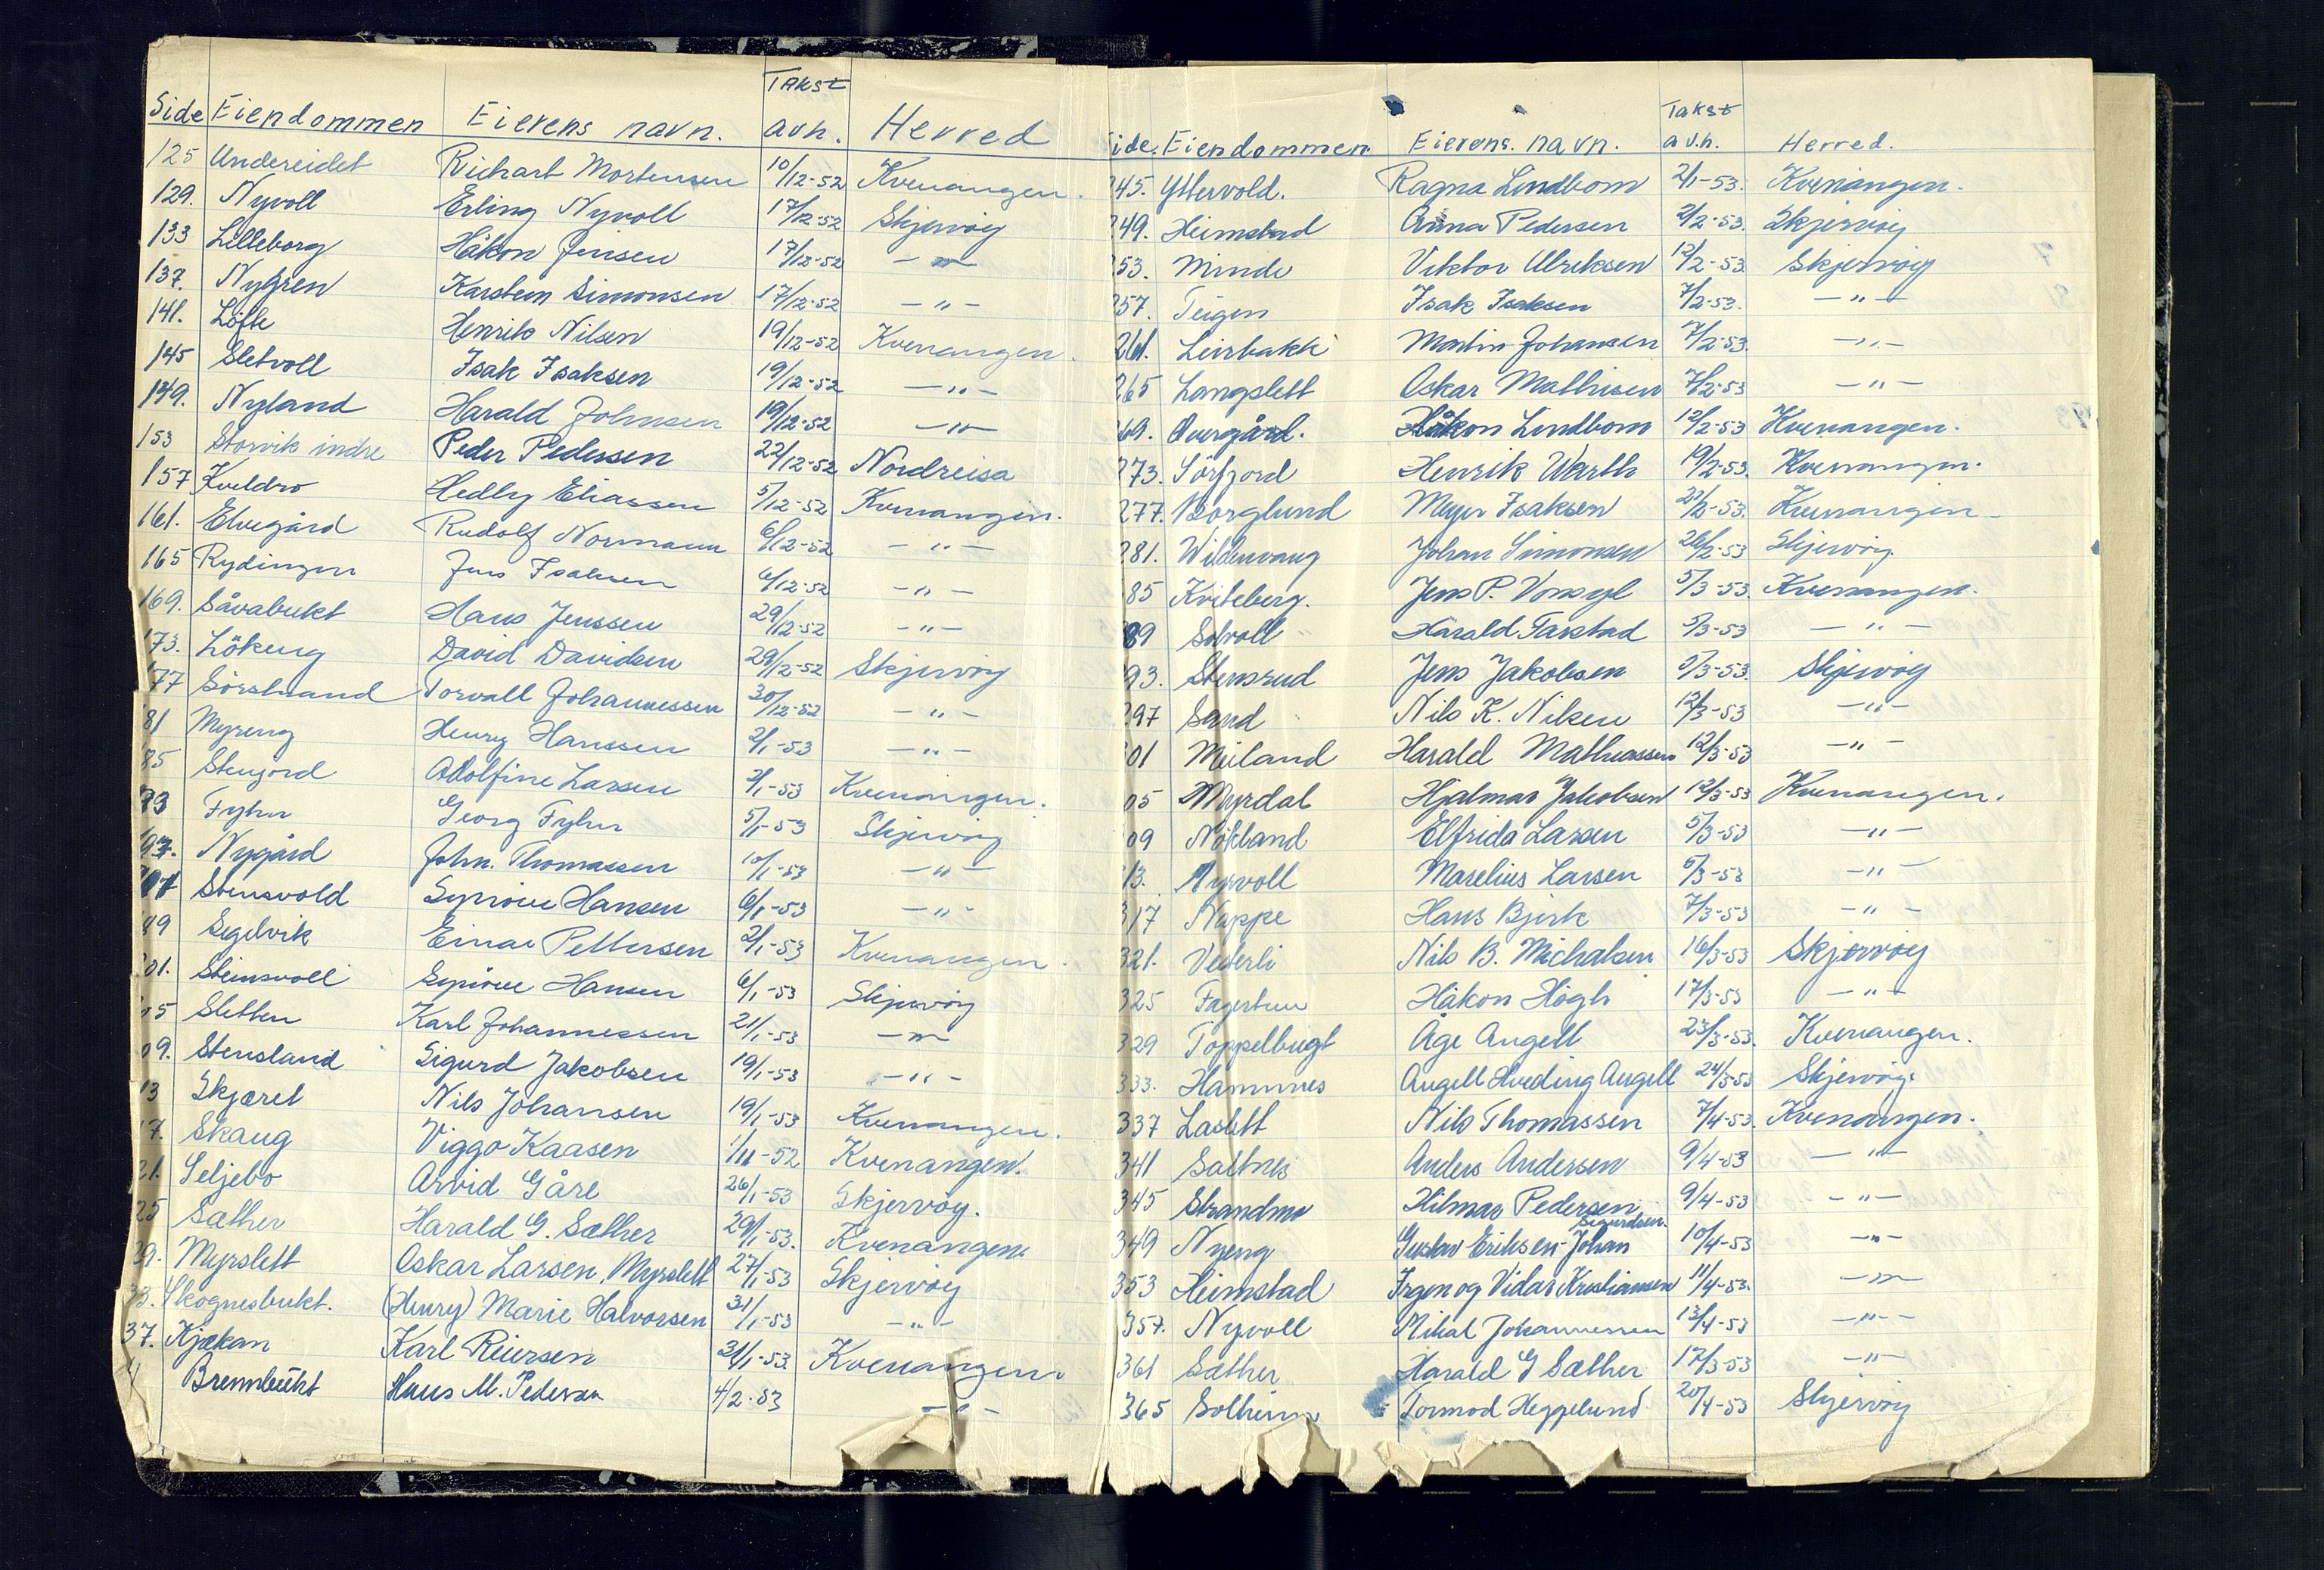 Takst
Side Eiendommen Eierens navn. avh. Herred
125 Undereidet Richart Mortensen 10/12-52 Kvenangen.
129. Nyvoll Erling Nyvoll 17/12-52 Skjervöy
133 Lilleborg Håkon Jensen 17/12-52 - " -
137. Nygren Karsten Simonsen 17/12-52 - " -
141. Löfte Henrik Nilsen 19/12-52 Kvenangen.
145 Sletvoll Isak Isaksen 19/12-52 - " -
149. Nyland Harald Johnsen 19/12-52 - " -
153 Storvik indre Peder Pedersen 22/12-52 Nordreisa
157 Kveldro Hedley Eliassen 5/12-52 Kvenangen.
161. Elvegård Rudolf Normann 6/12-52 - " -
165 Rydningen Jens Isaksen 6/12-52 - " -
169. Såvabukt Hans Jenssen 29/12-52 - " -
173. Lökeng David Davidsen 29/12-52 Skjervöy
77 Sörstrand Torvall Johannessen 30/12-52 - " -
81 Myreng Henry Hanssen 2/1-53 - " -
85 Stengord Adolfine Larsen 2/1-53 Kvenangen.
93 Fyhn Georg Fyhn 5/1-53 Skjervöy
97. Nygård John. Thomassen 10/1-53 - " -
Stensvold Synöve Hansen 6/1-53 - " -
89 Segelvik Einar Pettersen 2/1-53 Kvenangen.
01. Steinsvoll Synöve Hansen 6/1-53 Skjervöy
05 Sletten Karl Johannessen 21/1-53 - " -
09. Stensland Sigurd Jakobsen 19/1-53 - " -
13 Skjæret Nils Johansen 19/1-53 Kvenangen.
17. Skaug Viggo Kaasen 1/11-52 Kvenangen.
21. Seljebo Arvid Gåre 26/1-53 Skjervöy.
25 Sæther Harald G. Sæther 29/1-53. Kvenangen.
29. Myrslett Oskar Larsen, Myrslett 27/1-53 Skjervöy
33. Skognesbukt. (Henry) Marie Halvorsen 31/1-53 - " -
37. Kjækan Karl Reiersen 31/1-53. Kvenangen.
41 Brennbukt Hans M. Pedersen 4/2-53 - " -
Takst
ide. Eiendommen Eierens. navn. avh. Herred.
245. Yttervold. Ragna Lindbom 2/1-53. Kvenangen.
249. Heimstad Anna Pedersen 2/2-53. Skjervöy
253. Minde Viktor Ulriksen 12/2-53. Skjervöy
257. Teigen Isak Isaksen 7/2-53. - " -
261. Leirbakk Martin Johansen 7/2-53. - " -
265 Langslett Oskar Mathisen 7/2-53 - " -
269. Övergård. Håkon Lindbom 12/2-53 Kvenangen.
273. Sörfjord Henrik Warth 19/2-53. Kvenangen.
277. Borglund Meyer Isaksen 21/2-53. Kvenangen
281. Wildenvang Johan Simonsen 26/2-53 Skjervöy
285 Kviteberg. Jens P. 5/3-53. Kvenangen.
289 Solvoll Harald Farstad 5/3-53 - " -
293. Stensrud Jens Jakobsen 5/3-53. Skjervöy
297 Sand Nils K. Nilsen 12/3-53 - " -
01 Meiland Harald Mathiassen 12/3-53 - " -
05 Myrdal Hjalmar Jakobsen 12/3-53 Kvenangen.
09 Nökland Elfrida Larsen 5/3-53 - " -
13. Nyvoll Marelius Larsen 5/3-53 - " -
317 Nappe Hans Bjørk 7/3-53 - " -
321. Vederli Nils B. Michalsen 16/3-53 Skjervöy
325 Fagertun Håkon Högh 17/3-53 - " -
329 Toppelbugt Åge Angell 23/3-53. Kvenangen.
333. Hamnnes Angell Hveding Angell 24/3-53 Skjervöy.
337 Laslett Nils Thomassen 7/4-53. Kvenangen.
341 Saltnes Anders Andersen 9/4-53 - " -
345 Strandmo Hilmar Pedersen 9/4-53 - " -
Sigurdsen.
349 Nyeng Gustav Eriksen-Johan 10/4-53 - " -
353 Heimstad Irgen og Vidar Kristiansen 11/4-53. - " -
357. Nyvoll Mikal Johannessen 13/4-53 - " -
361 Sæther Harald G Sæther 17/3-53 - " -
365 Solheim Tormod Heggelund 20/4-53 Skjervöy